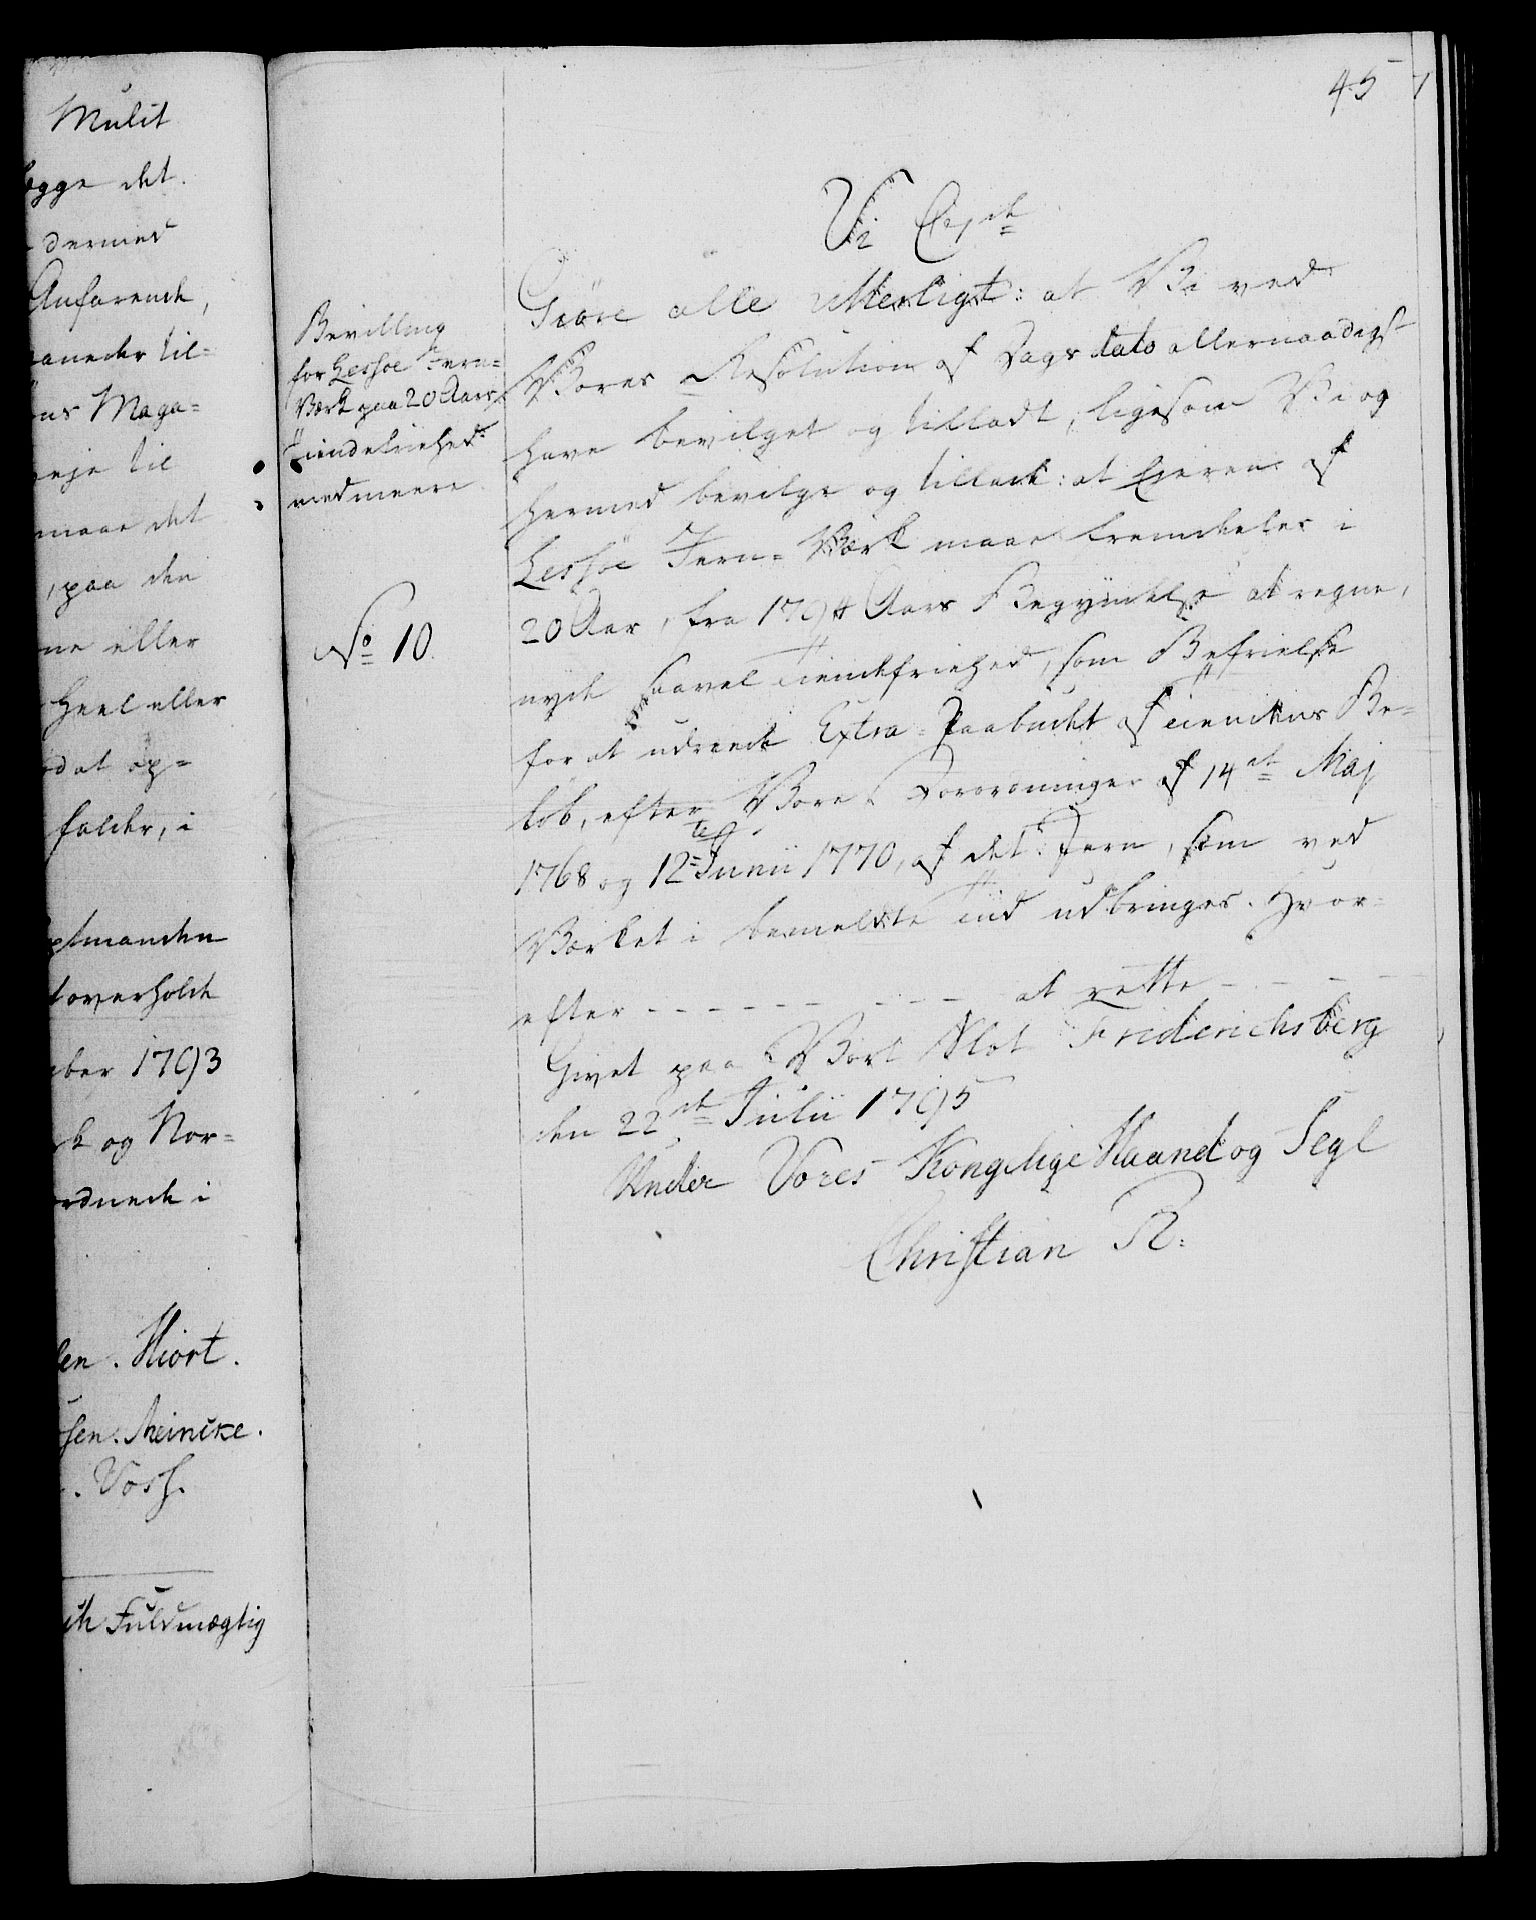 Mulit
ægge det.
dermed
Anförende,
maaneder til=
ons Maga=
eje til
maae det
, paa den
ne eller
Heel eller
dat op=
falder, i
ptmanden
overholde
ber 1793
k og Nor=
ordnede i
len. Hiort.
sen. Meincke.
. Voss.
Fuldmægtig
Bevilling
for Lessöe Jern=
Værk paa 20 Aars
Tiendefriehed
med meere
No 10.
45
Vi C. 7de
Giöre alle vitterligt: at Vi ved
Vores Resolution af Dags dato allernaadigst
have bevilget og tilladt, ligesom Vi og
hermed bevilge og tillade: at Eieren af
Lessöe Jern=Værk maae fremdeles i
20 Aar, fra 1794 Aars Begyndelse at regne,
nyde saavel Tiendefriehed, som Befrielse
for at udreede Extra=Paabudet af Tiendens Be=
löb, efter Vore Forordninger af 14de Maj
1768 og 12te Junii 1770, af det Jern, som ved
Værket i bemeldte Tiid udbringes. Hvor=
efter - - - - - - - - - at rette - - - -
Givet paa Vort Slot Friderichsberg
den 22de Julii 1795
Under Vores Kongelige Haand og Segl
Christian R.